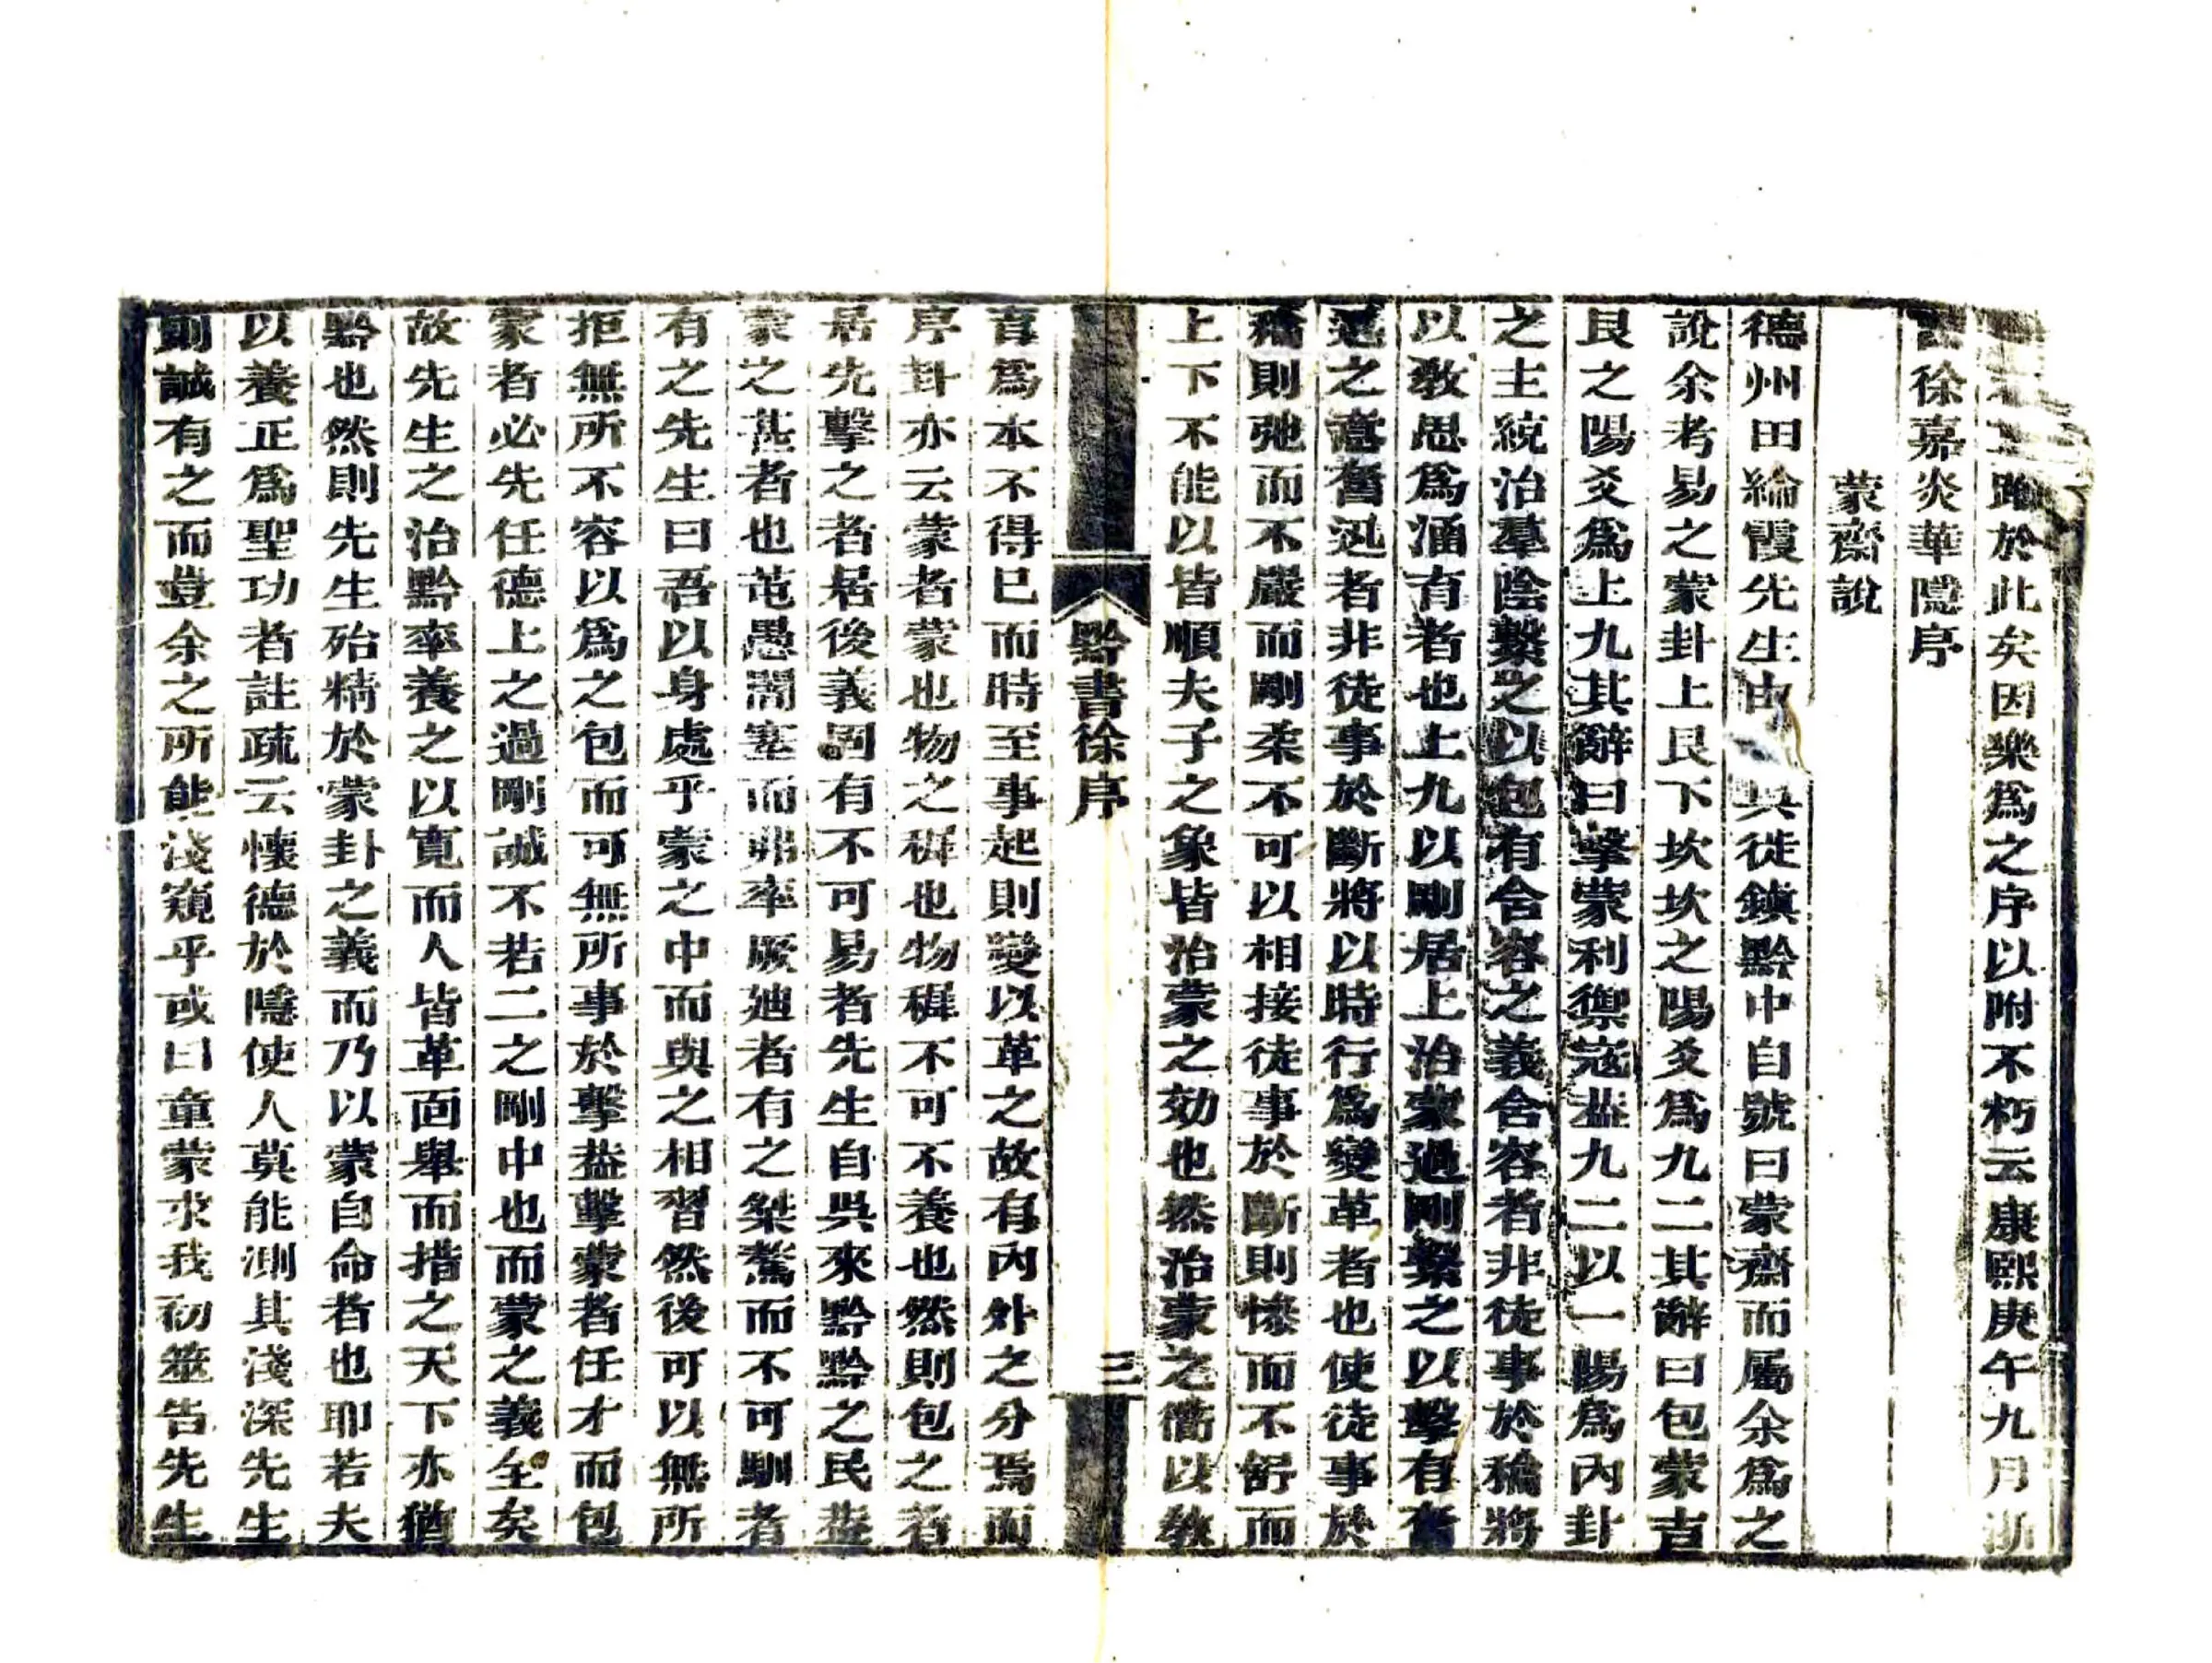 踰於此矣因樂爲之序以附不朽云康熙庚午九月浙
徐嘉炎華隱序
蒙齋說
德州田綸霞先生由吳徙鎮黔中自號曰蒙齋而屬余爲之
說余考易之蒙卦上艮下坎坎之陽爻爲九二其辭曰包蒙吉
艮之陽爻爲上九其辭曰擊蒙利禦寇葢九二以一陽爲內卦
之主統治羣陰繫之以包有含容之義含容者非徒事於穚將
以敎思爲涵有者也上九以剛居上治蒙過剛繫之以擊有奮
迅之意奮迅者非徒事於斷將以時行爲變革者也使徒事於
穚則弛而不嚴而剛柔不可以相接徒事於斷則慘而不舒而
上下不能以皆順夫子之象皆治蒙之効也然治蒙之衜以敎
育爲本不得已而時至事起則變以革之故有內外之分焉而
黔書徐序
三
序卦亦云蒙者蒙也物之穉也物穉不可不養也然則包之者
居先擊之者居後義固有不可易者先生自吳來黔黔之民葢
蒙之甚者也芚愚闇塞而弗率厥廸者有之桀驁而不可馴者
有之先生曰吾以身處乎蒙之中而與之相習然後可以無所
拒無所不容以爲之包而可無所事於擊葢擊蒙者任才而包
蒙者必先任德上之過剛誠不若二之剛中也而蒙之義全矣
故先生之治黔率養之以寬而人皆革面舉而措之天下亦猶
黔也然則先生殆精於蒙卦之義而乃以蒙自命者也耶若夫
以養正爲聖功者註疏云懷德於隱使人莫能測其淺深先生
則誠有之而豈余之所能淺窺乎或曰童蒙求我初筮告先生